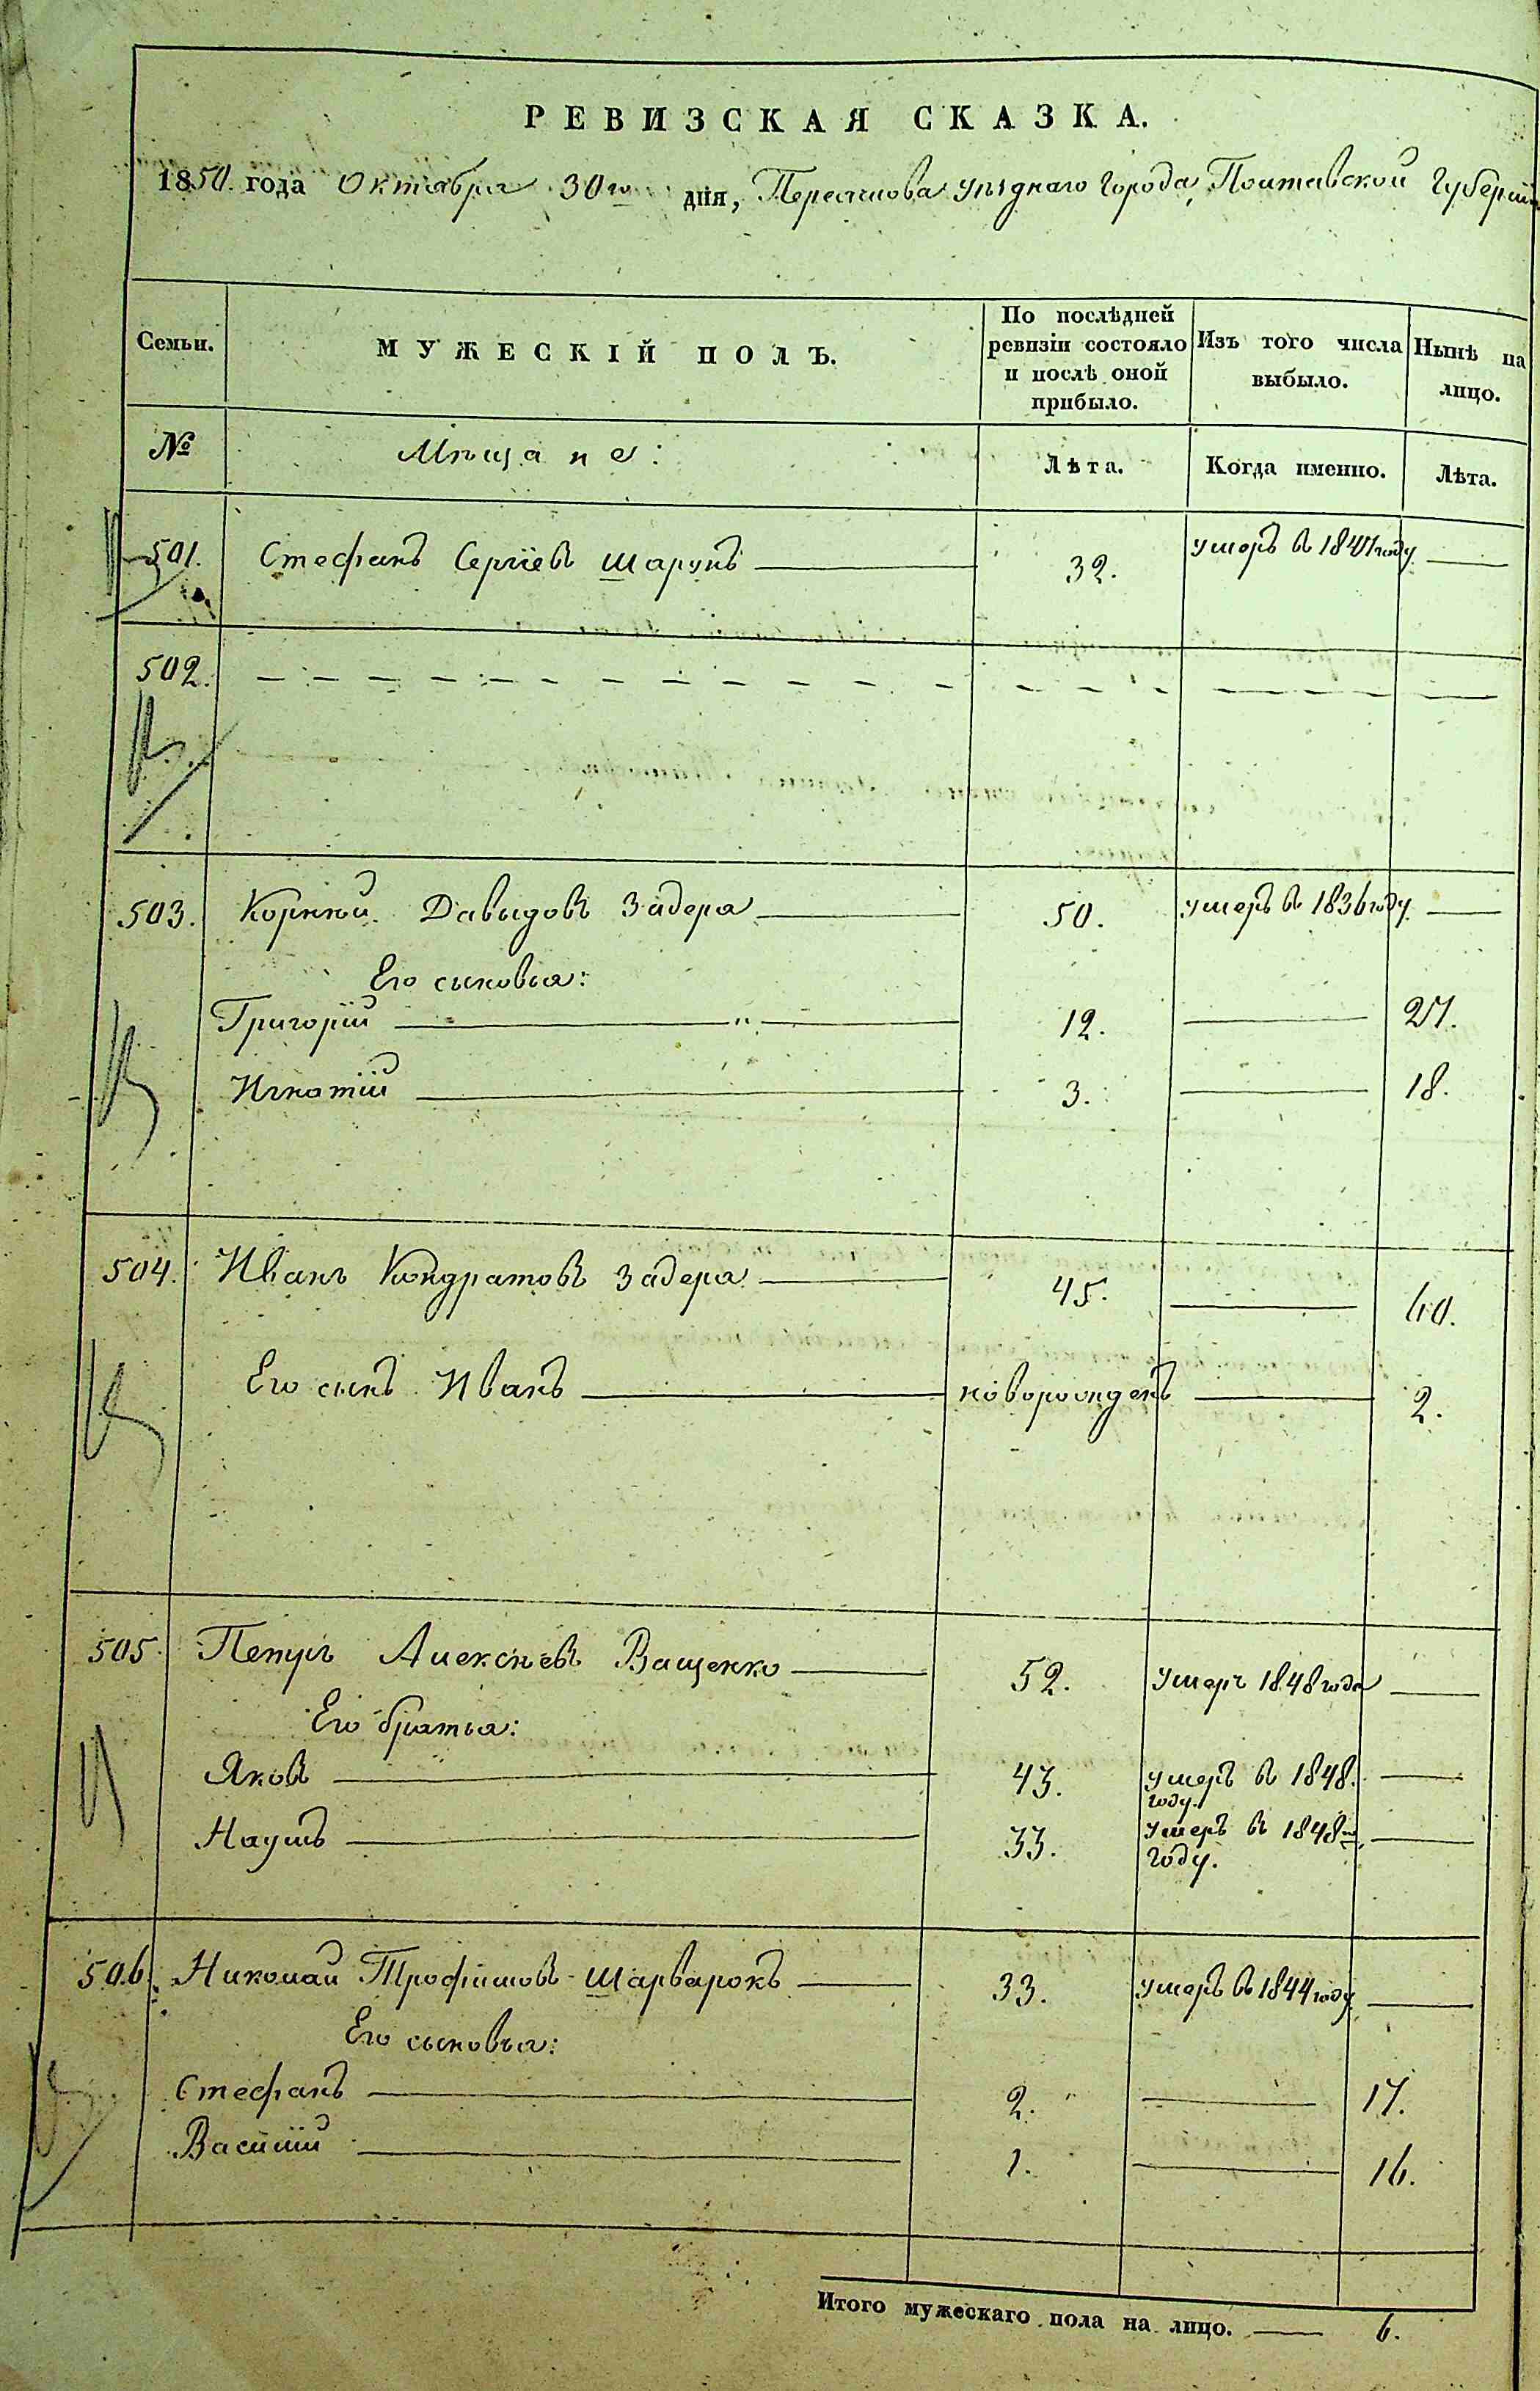 РЕВИЗСКАЯ СКАЗКА.
1850. года Октября 30го дня, Переяслова уѣзднаго города, Полтавской Губерніи
Семьи. МУЖЕСКІЙ ПОЛЪ. По послѣдней ревизіи состояло и послѣ оной прибыло. Изъ того числа выбыло. Нынѣ на лицо.
№ Мѣщане: Лѣта. Когда именно. Лѣта.
501. Стефанъ Сергіевъ Шарунъ 32. умеръ въ 1841 году.
502.
503. Корнѣй Давыдовъ Задера 50. умеръ въ 1836 году.
Его сыновья:
Григорій 12. 27.
Игнатій 3. 18.
504. Иванъ Кондратовъ Задера 45. 60.
Его сынъ Иванъ новорожденъ 2.
505. Петръ Алексѣевъ Ващенко 52. Умеръ 1848 года
Его братья:
Яковъ 43. умеръ въ 1848. году.
Наумъ 33. Умеръ въ 1848м году.
506. Николай Трофимовъ Шарварокъ 33. умеръ въ 1844 году
Его сыновья:
Стефанъ 2. 17.
Василій 1. 16.
Итого мужескаго пола на лицо. 6.